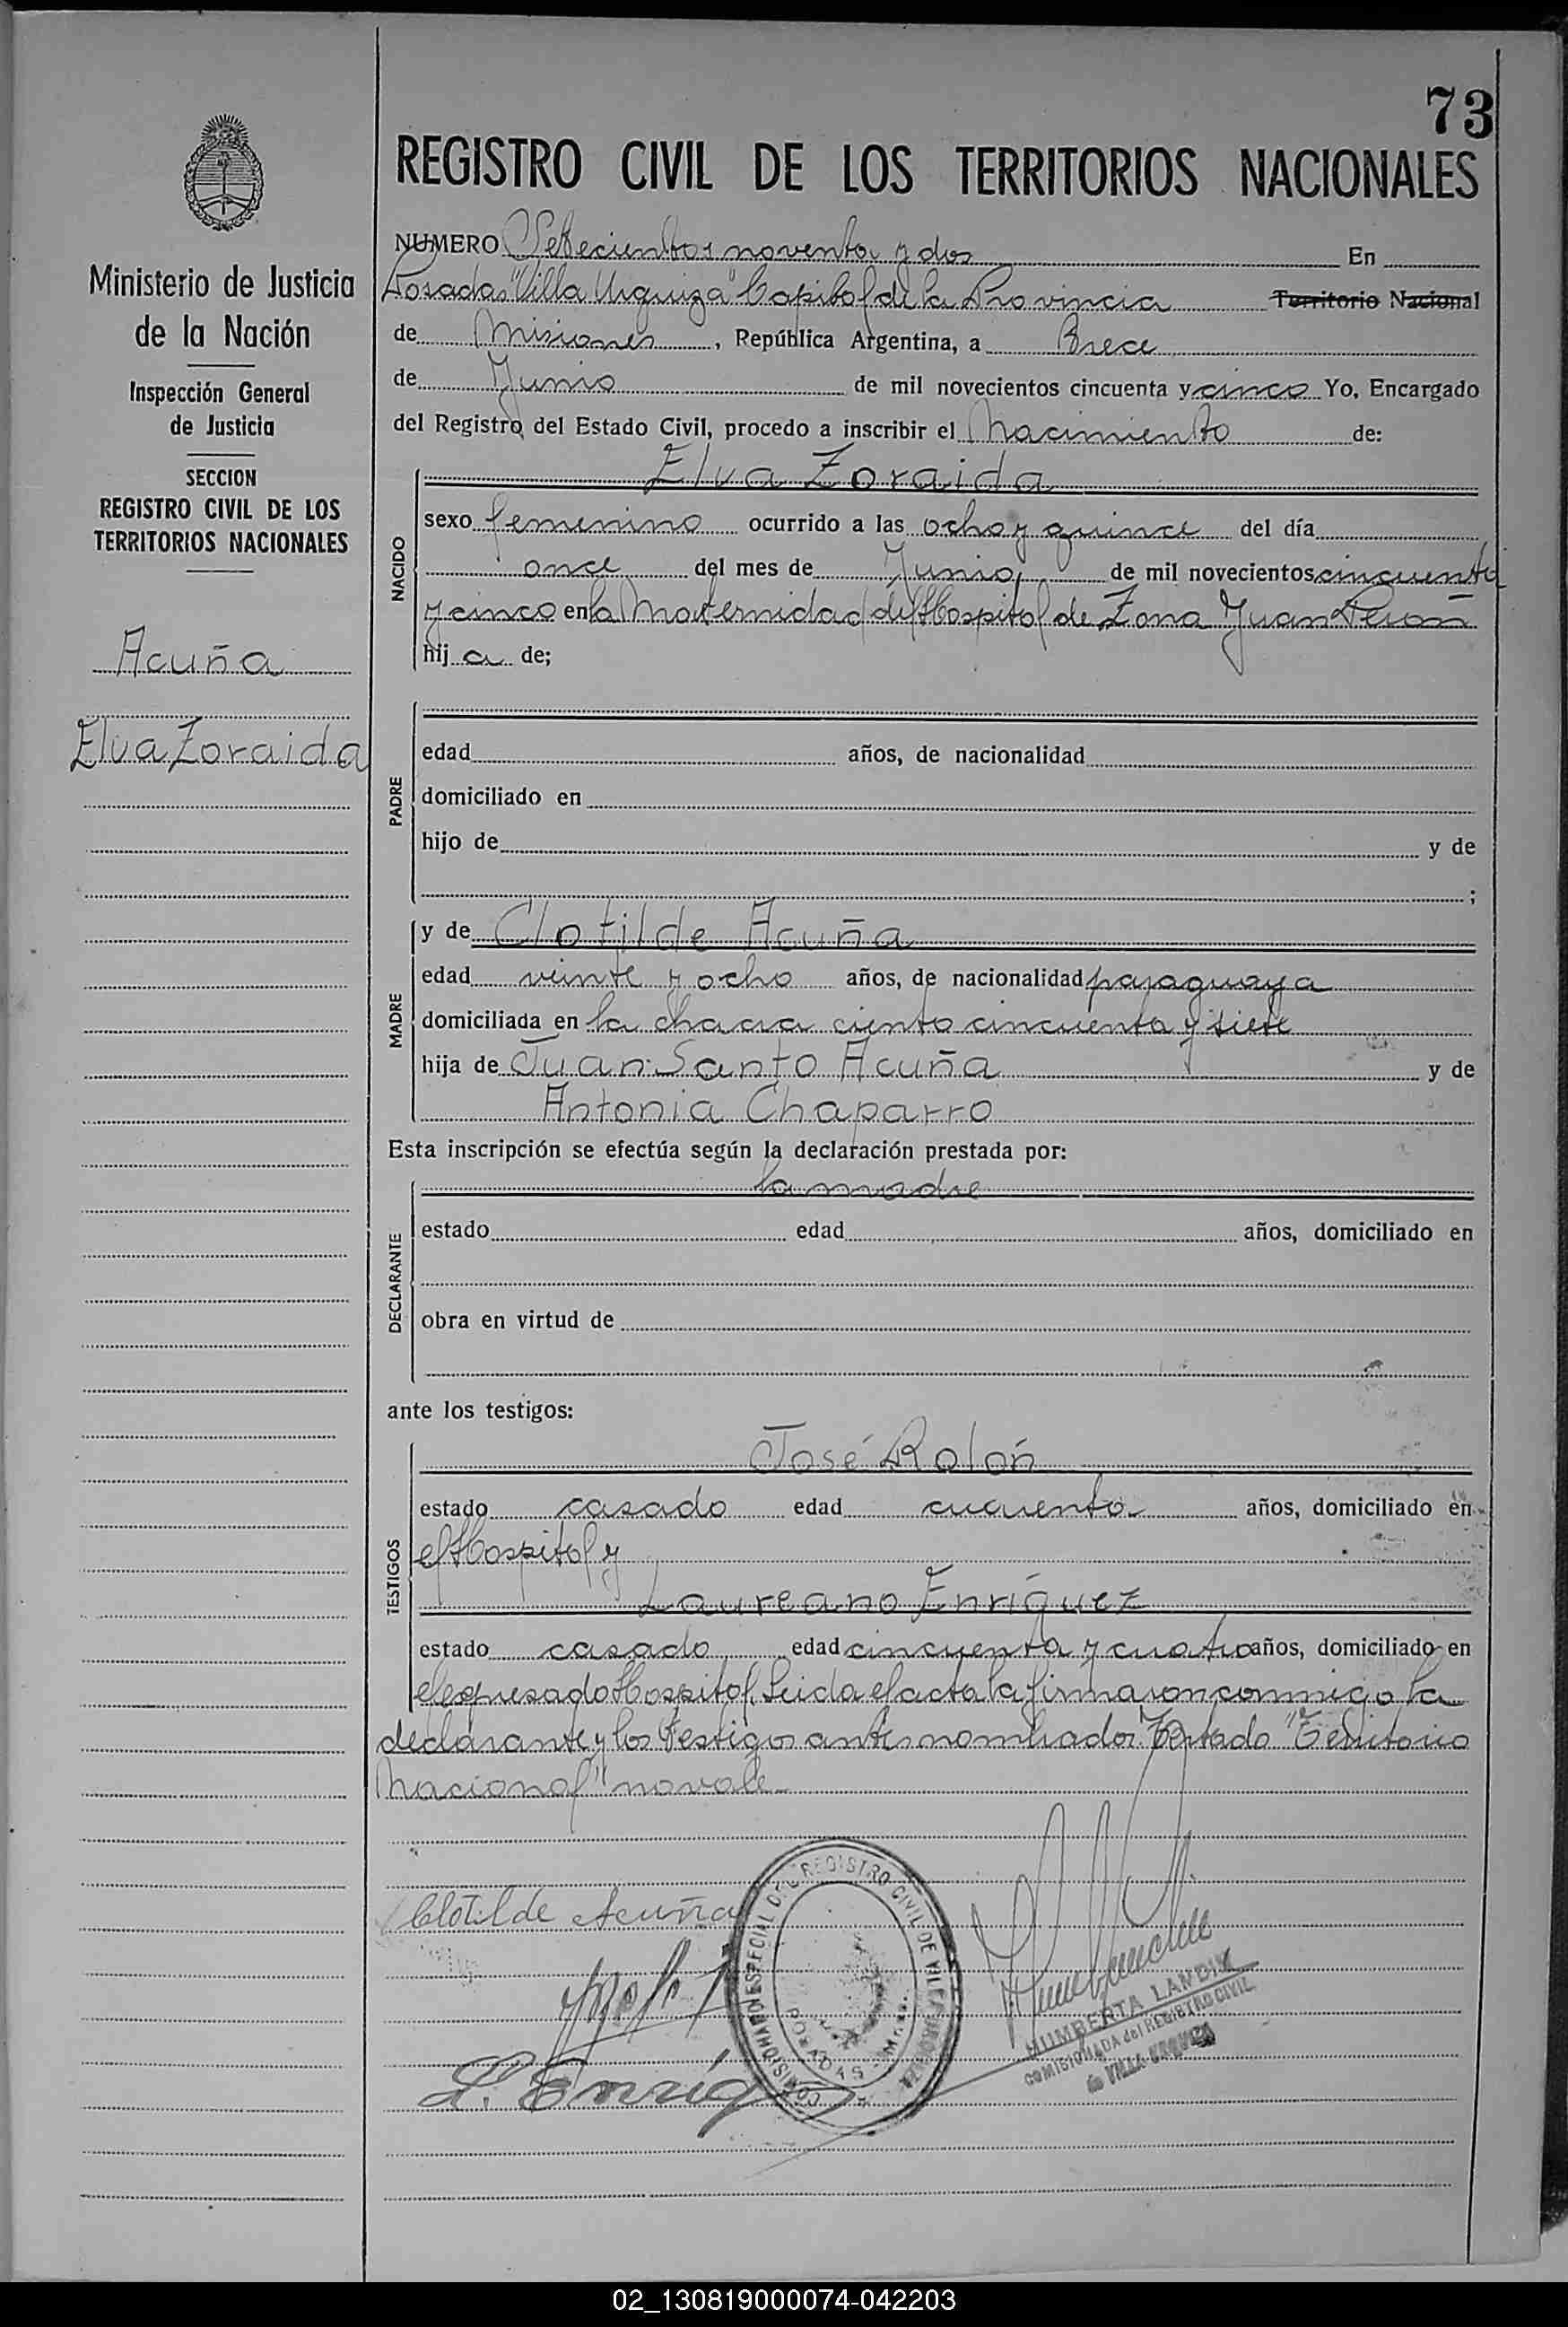 73
REGISTRO CIVIL DE LOS TERRITORIOS NACIONALES
Ministerio de Justicia
de la Nación
Inspección General
de Justicia
SECCION
REGISTRO CIVIL DE LOS
TERRITORIOS NACIONALES
Acuña
Elva Zoraida
NUMERO Setecientos noventa y dos En
Posadas "Villa Urquiza" Capital de la Provincia Territorio Nacional
de Misiones, República Argentina, a Trece
de Junio de mil novecientos cincuenta y cinco Yo, Encargado
del Registro del Estado Civil, procedo a inscribir el Nacimiento de:
NACIDO
Elva Zoraida
sexo femenino ocurrido a las ocho y quince del día
once del mes de Junio de mil novecientos cincuenta
y cinco en la Maternidad del Hospital de Zona Juan Perón
hij a de;
PADRE
edad años, de nacionalidad
domiciliado en
hijo de y de
;
MADRE
y de Clotilde Acuña
edad veinte y ocho años, de nacionalidad paraguaya
domiciliada en la chacra ciento cincuenta y siete
hija de Juan Santo Acuña y de
Antonia Chaparro
Esta inscripción se efectúa según la declaración prestada por:
DECLARANTE
la madre
estado edad años, domiciliado en
obra en virtud de
ante los testigos:
TESTIGOS
José Rolón
estado casado edad cuarenta años, domiciliado en
el Hospital y
Laureano Enríquez
estado casado edad cincuenta y cuatro años, domiciliado en
el expresado Hospital. Leida el acta la firmaron conmigo la
declarante y los testigos antes nombrados. Testado "Territorio
Nacional" no vale.
Clotilde Acuña
L. Enríq
COMISIONADO ESPECIAL DEL REGISTRO CIVIL DE VILLA URQUIZA
POSADAS
HUMBERTA LANDIX
COMISIONADA del REGISTRO CIVIL
de VILLA URQUIZA
02_130819000074-042203